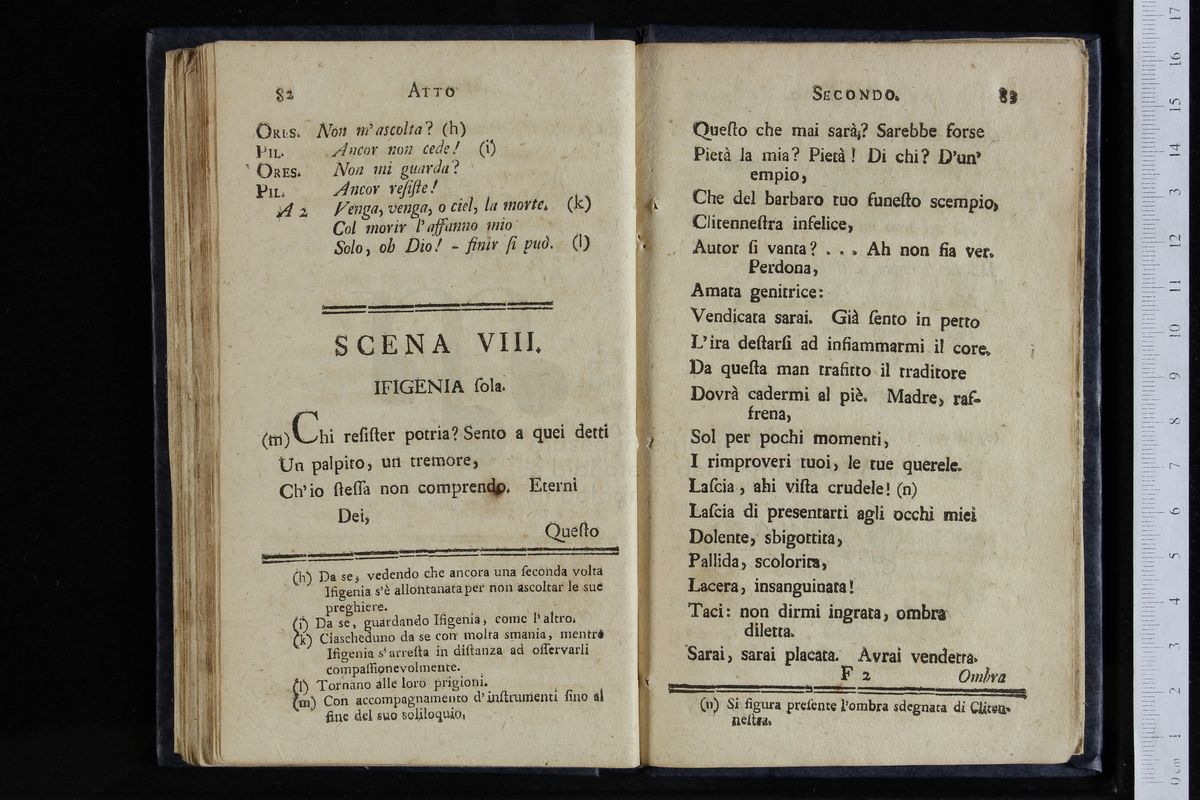 82 ATTO
ORES. Non m'ascolta? (h)
PIL. Ancor non cede! (i)
ORES. Non mi guarda?
PIL. Ancor resiſte!
A 2 Venga, venga, o ciel, la morte. (k)
Col morir l'affanno mio
Solo, oh Dio! - finir ſi può. (l)
SCENA VIII.
IFIGENIA ſola.
(m) Chi reſiſter potria? Sento a quei detti
Un palpito, un tremore,
Ch'io ſteſſa non comprendo. Eterni
Dei,
Queſto
(h) Da se, vedendo che ancora una ſeconda volta
Ifigenia s'è allontanata per non ascoltar le sue
preghiere.
(i) Da se, guardando Ifigenia, come l'altro.
(k) Ciascheduno da se con molta smania, mentre
Ifigenia s'arreſta in diſtanza ad oſſervarli
compaſſionevolmente.
(l) Tornano alle loro prigioni.
(m) Con accompagnamento d'inſtrumenti ſino al
fine del suo soliloquio.
SECONDO. 83
Queſto che mai sarà? Sarebbe forse
Pietà la mia? Pietà! Di chi? D'un'
empio,
Che del barbaro tuo funeſto scempio,
Clitenneſtra infelice,
Autor ſi vanta? . . . Ah non ſia ver.
Perdona,
Amata genitrice:
Vendicata sarai. Già ſento in petto
L'ira deſtarſi ad infiammarmi il core.
Da queſta man trafitto il traditore
Dovrà cadermi al piè. Madre, raf-
frena,
Sol per pochi momenti,
I rimproveri tuoi, le tue querele.
Laſcia, ahi viſta crudele! (n)
Laſcia di presentarti agli occhi miei
Dolente, sbigottita,
Pallida, scolorita,
Lacera, insanguinata!
Taci: non dirmi ingrata, ombra
diletta.
Sarai, sarai placata. Avrai vendetta.
F 2 Ombra
(n) Si figura preſente l'ombra sdegnata di Cliten-
neſtra.
0 cm 1 2 3 4 5 6 7 8 9 10 11 12 13 14 15 16 17